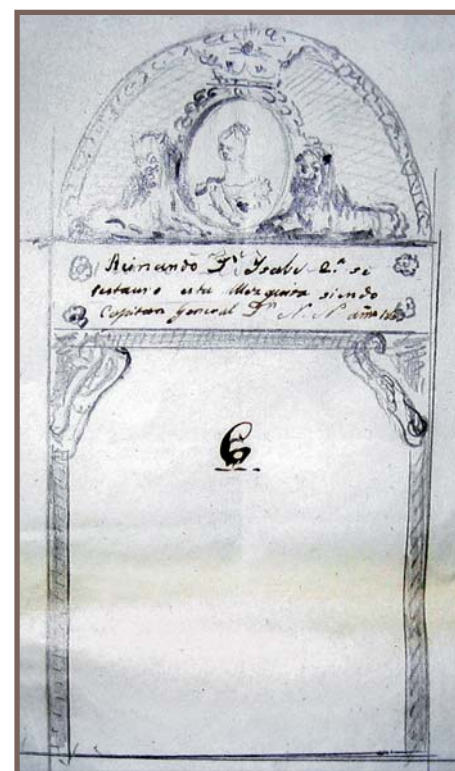 Reinando Dª Isabel 2.ª se
restauro esta Mezquita siendo
Capitan General Dⁿ N. N. año
6